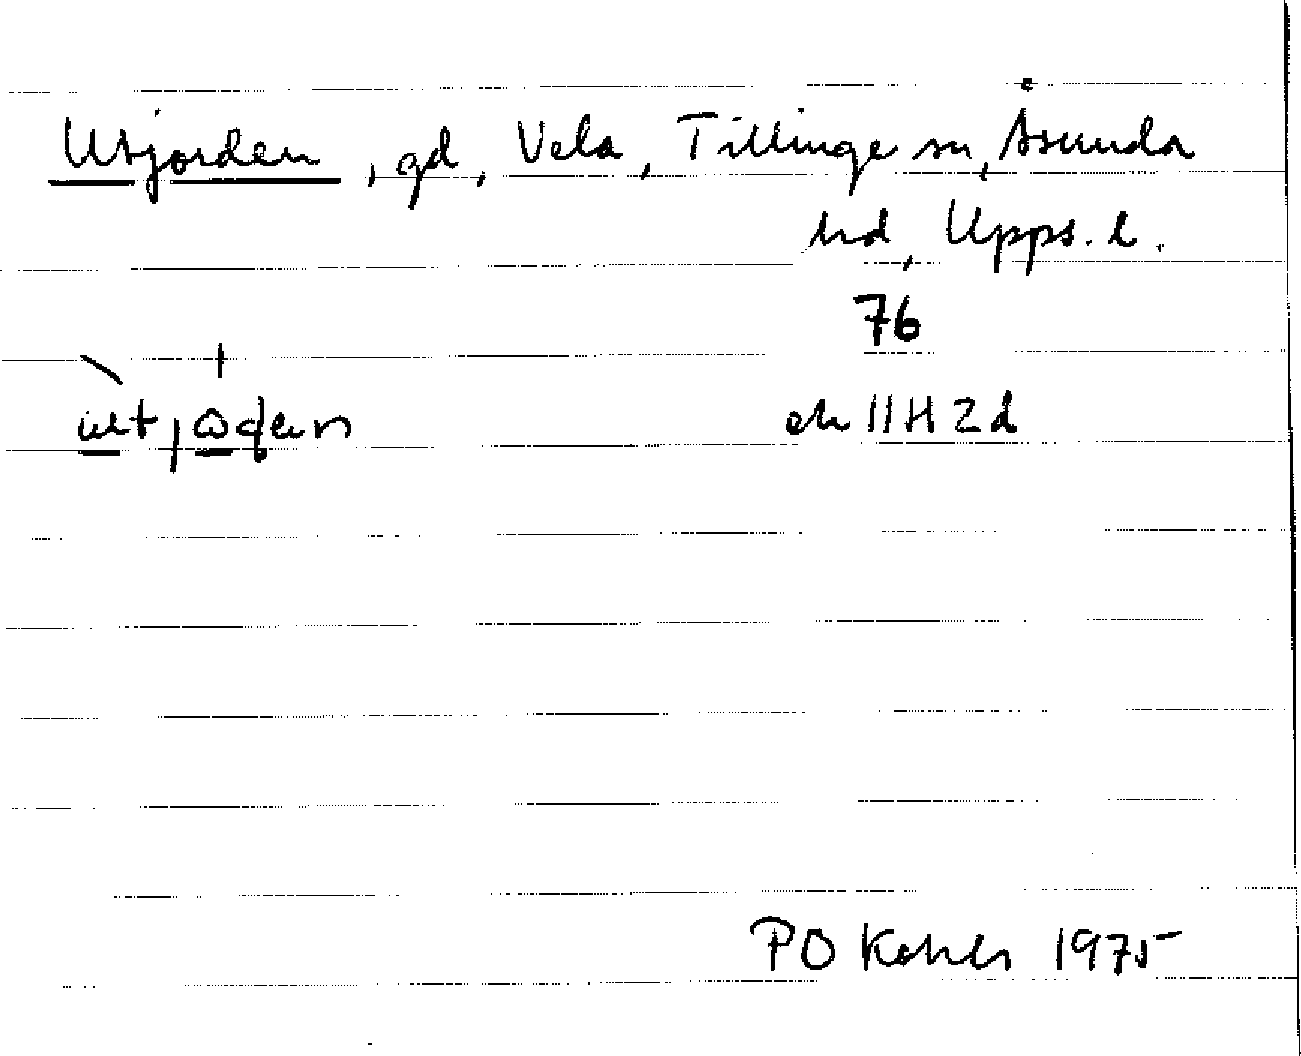 Utjorden, gd, Vela, Tillinge sn, Åsunda
hd, Upps. l.
76
ek 11H2d
PO Kahls 1975